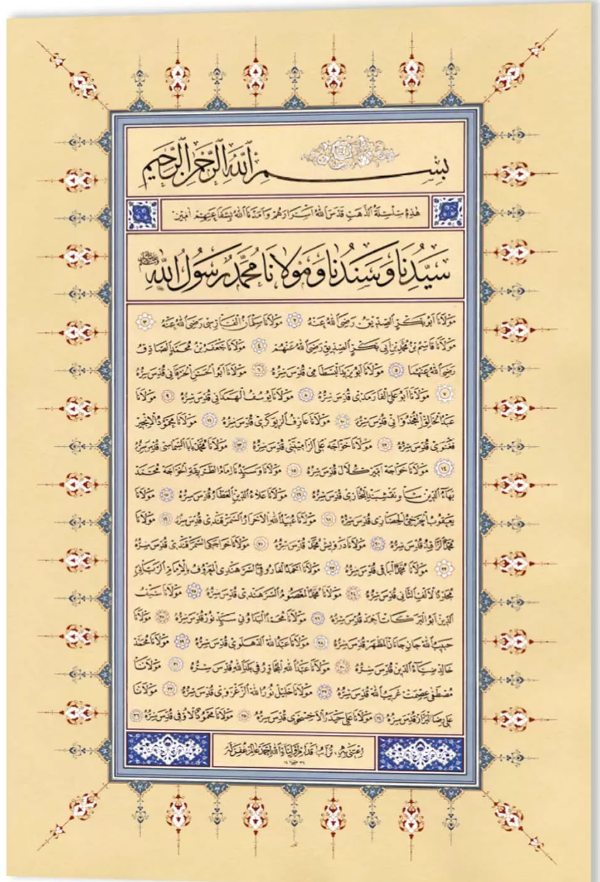 بسم الله الرحمن الرحيم
هذه سلسلة الذهب قدس الله اسرارهم وامدنا الله بشفاعتهم امين
سيدنا وسندنا ومولانا محمد رسول الله ﷺ
مولانا ابو بكر الصديق رضى الله عنه ٢ مولانا سلمان الفارسى رضى الله عنه ٣
مولانا قاسم بن محمد بن ابى بكر الصديق رضى الله عنهم ٤ مولانا جعفر بن محمد الصادق
رضى الله عنهما ٥ مولانا ابو يزيد البسطامى قدس سره ٦ مولانا ابو الحسن الخرقانى قدس سره
٧ مولانا ابو على الفارمدى قدس سره ٨ مولانا يوسف الهمدانى قدس سره ٩ مولانا
عبد الخالق الغجدوانى قدس سره ١٠ مولانا عارف الريوكرى قدس سره ١١ مولانا محمود الانجير
فغنوى قدس سره ١٢ مولانا خواجه على الراميتنى قدس سره ١٣ مولانا محمد بابا السماسى قدس سره
١٤ مولانا خواجه امير كلال قدس سره ١٥ مولانا وسيدنا امام الطريقة الخواجه محمد
بهاء الدين شاه نقشبند البخارى قدس سره ١٦ مولانا علاء الدين العطار قدس سره ١٧ مولانا
يعقوب الچرخى الحصارى قدس سره ١٨ مولانا عبيد الله الاحرار السمرقندى قدس سره ١٩ مولانا
محمد الزاهد قدس سره ٢٠ مولانا درويش محمد قدس سره ٢١ مولانا خواجكى السمرقندى قدس سره
٢٢ مولانا محمد الباقى قدس سره ٢٣ مولانا احمد الفاروقى السرهندى المعروف بالامام الربانى
مجدد الالف الثانى قدس سره ٢٤ مولانا محمد المعصوم السرهندى قدس سره ٢٥ مولانا سيف
الدين قدس سره ٢٦ مولانا محمد البداونى سيد نور قدس سره ٢٧ مولانا
حبيب الله جان جانان المظهر قدس سره ٢٨ مولانا عبد الله الدهلوى قدس سره ٢٩ مولانا محمد
خالد ضياء الدين قدس سره ٣٠ مولانا عبد الله قدس سره ٣١ مولانا
مصطفى عصمت غريب الله قدس سره ٣٢ مولانا خليل نور الله قدس سره ٣٣ مولانا
على رضا البزاز قدس سره ٣٤ مولانا على حيدر الاخسخوى قدس سره ٣٥ مولانا محمود قدس سره ٣٦